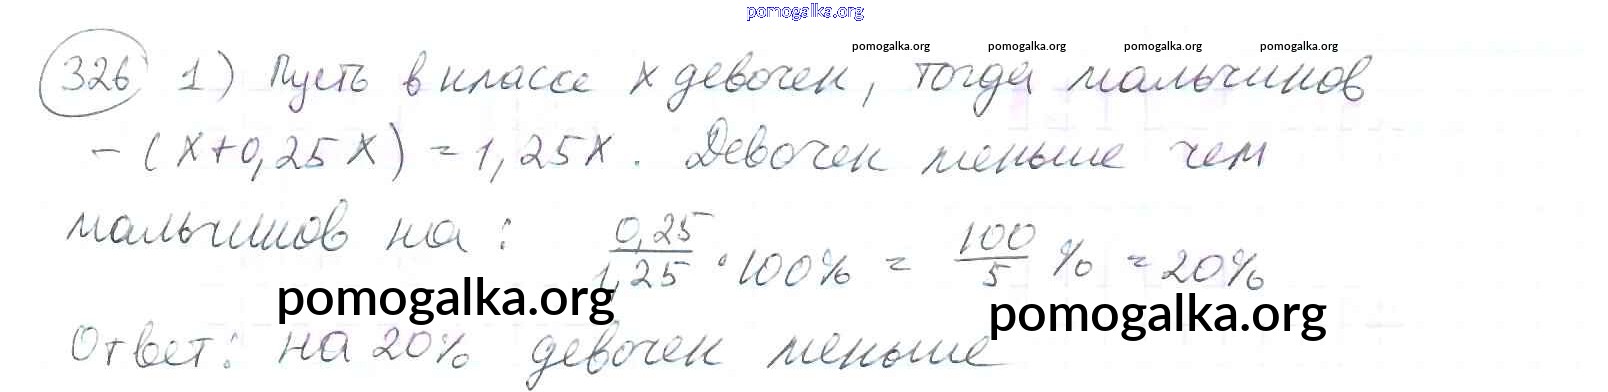 pomogalka.org
pomogalka.org pomogalka.org pomogalka.org pomogalka.org
326 1) Пусть в классе x девочек, тогда мальчиков
– (x+0,25x) = 1,25x. Девочек меньше чем
мальчиков на: 0,25/1,25 · 100% = 100/5 % = 20%
pomogalka.org pomogalka.org
Ответ: на 20% девочек меньше